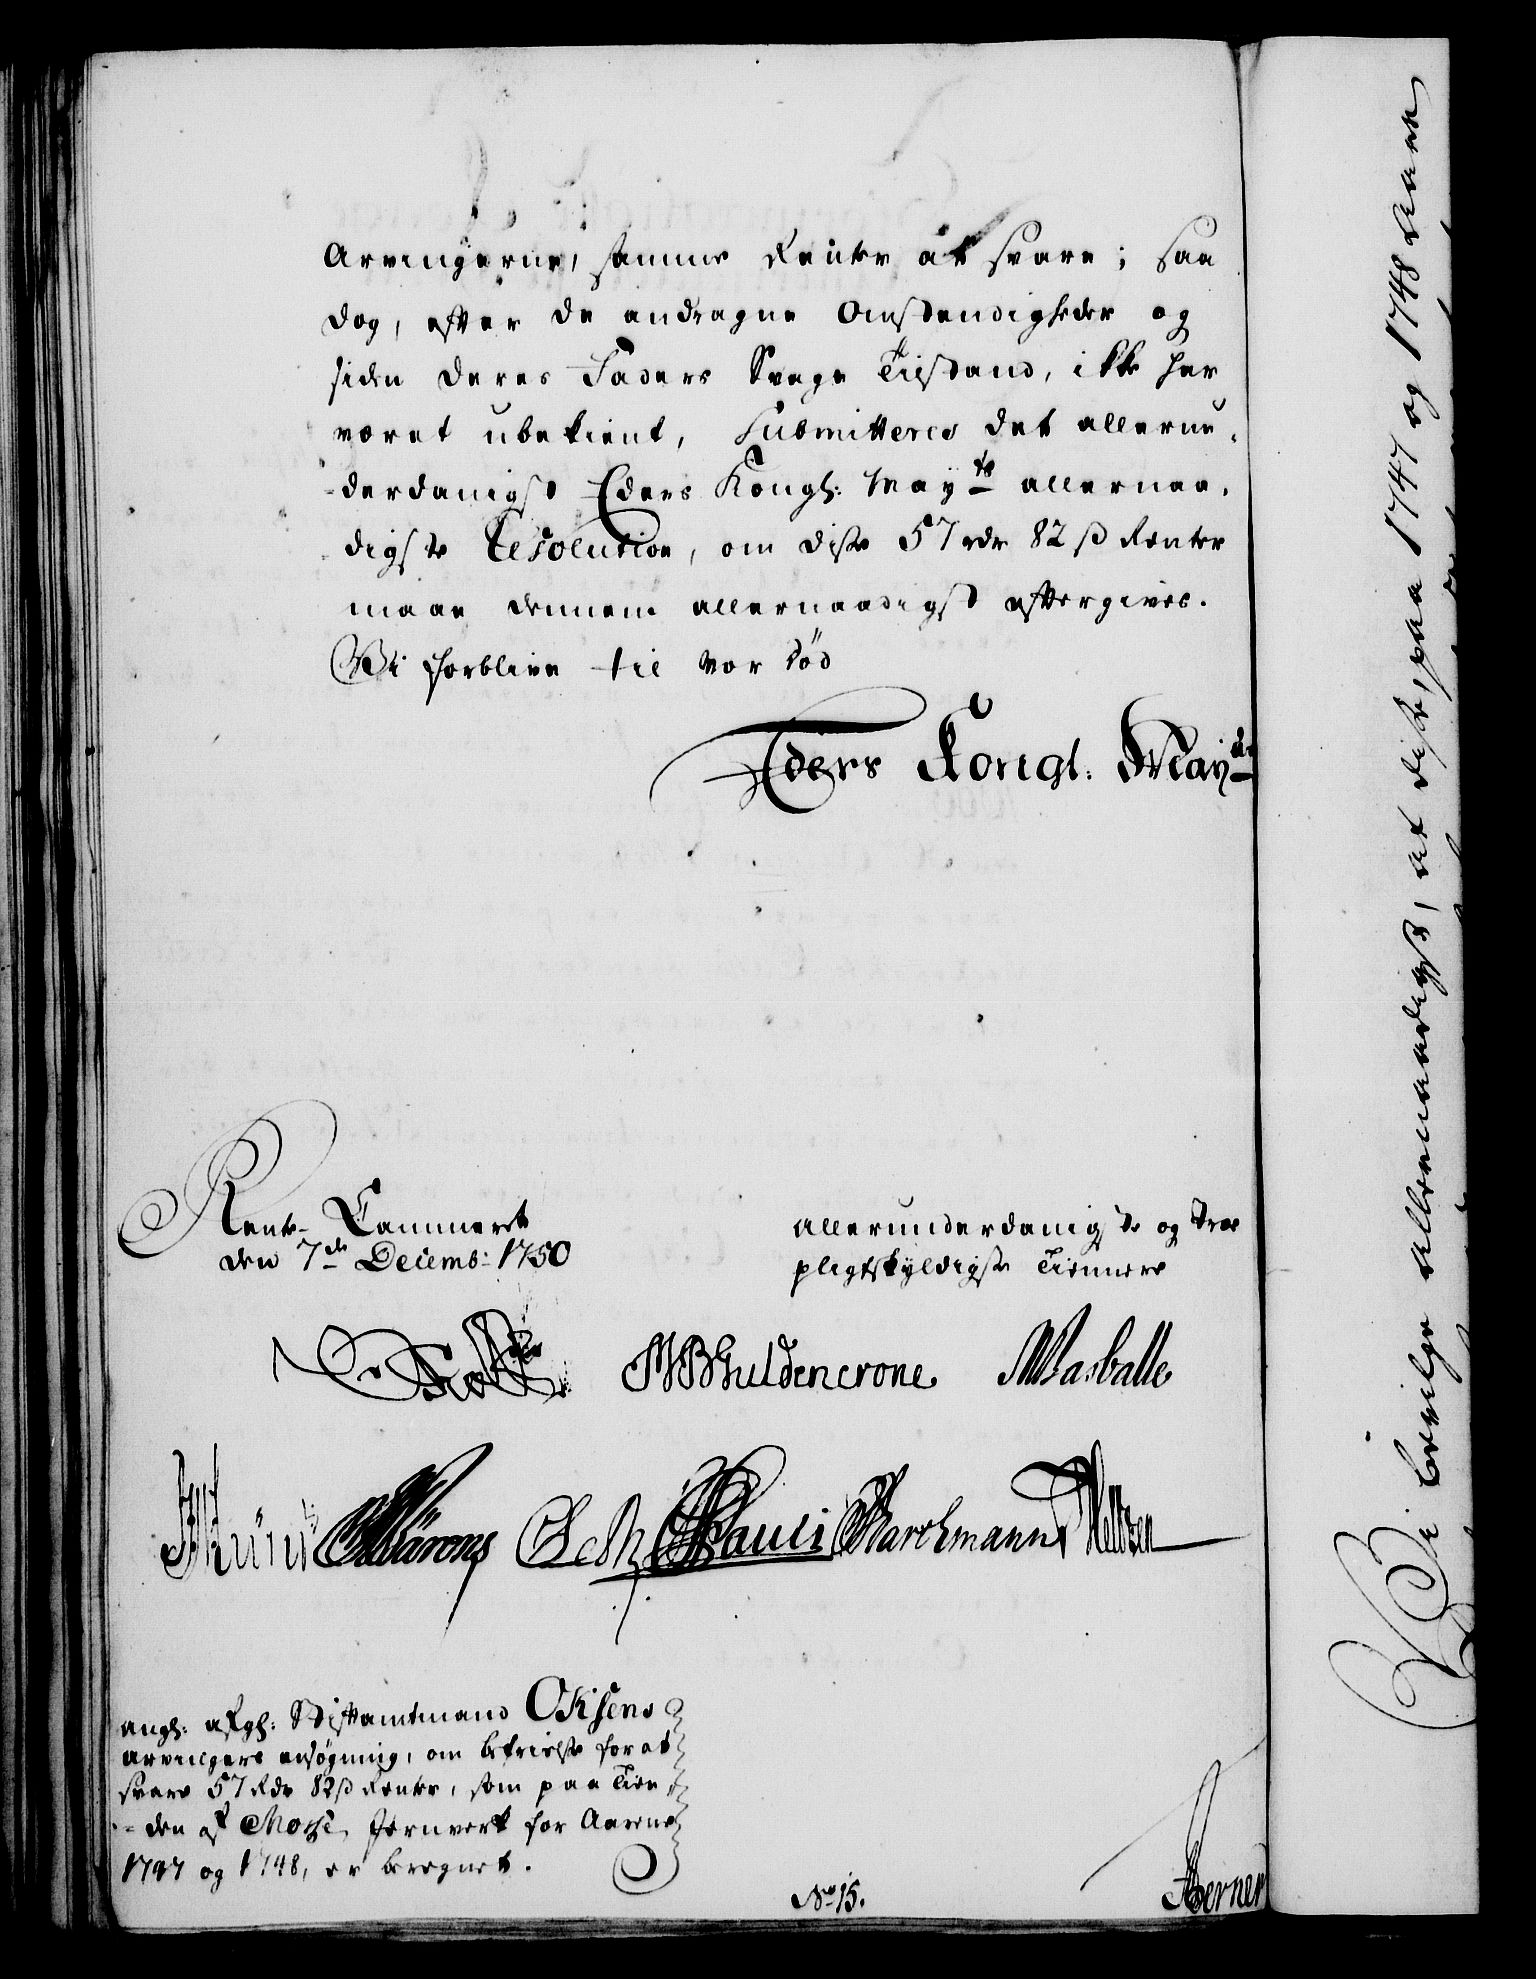 Arvingerne, samme Renter at svare; saa
dog, efter de andragne Omstændigheder og
siden deres Faders Svage Tilstand, ikke har
været ubekient, Submitteres det allerun-
derdanigst Eders Kongl: May<sup>ts</sup> allernaa-
digste Resolution, om disse 57 rdr 82 ß Renter
maae dennem allernaadigst eftergives.
Vi forblive til vor død
Eders Kongl: May<sup>ts</sup>
Rente-Cammeret
den 7<sup>de</sup> Decemb: 1750
allerunderdanigste og troe
pligtskyldigste Tiennere
MBGuldencrone Wasballe
Pauli Barchmann
angl: afgl: Stiftamtmand Oksens
Arvingers ansøgning, om befrielse for at
svare 57 Rdr 82 ß Renter, som paa Tien-
den af Mossi Jernverk for Aarene
1747 og 1748, er beregnet.
No 15.
Berner
Vi bevilge allernaadigst, at disse, paa 1747 og 1748